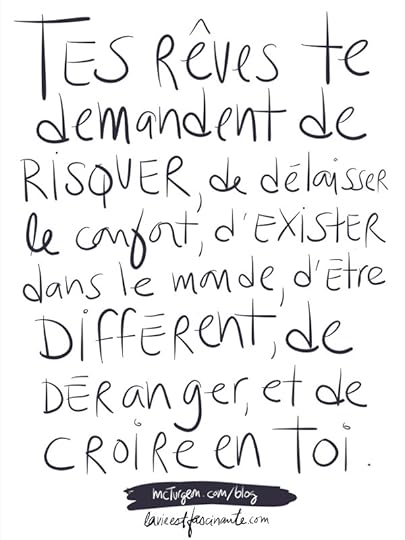 TES RÊVES te
demandent de
RISQUER, de délaisser
le confort, d'EXISTER
dans le monde, d'Être
DIFFÉRENT, de
DÉRanger, et de
CROIRE en Toi.
mcTurgem.com/blog
lavieestfascinante.com